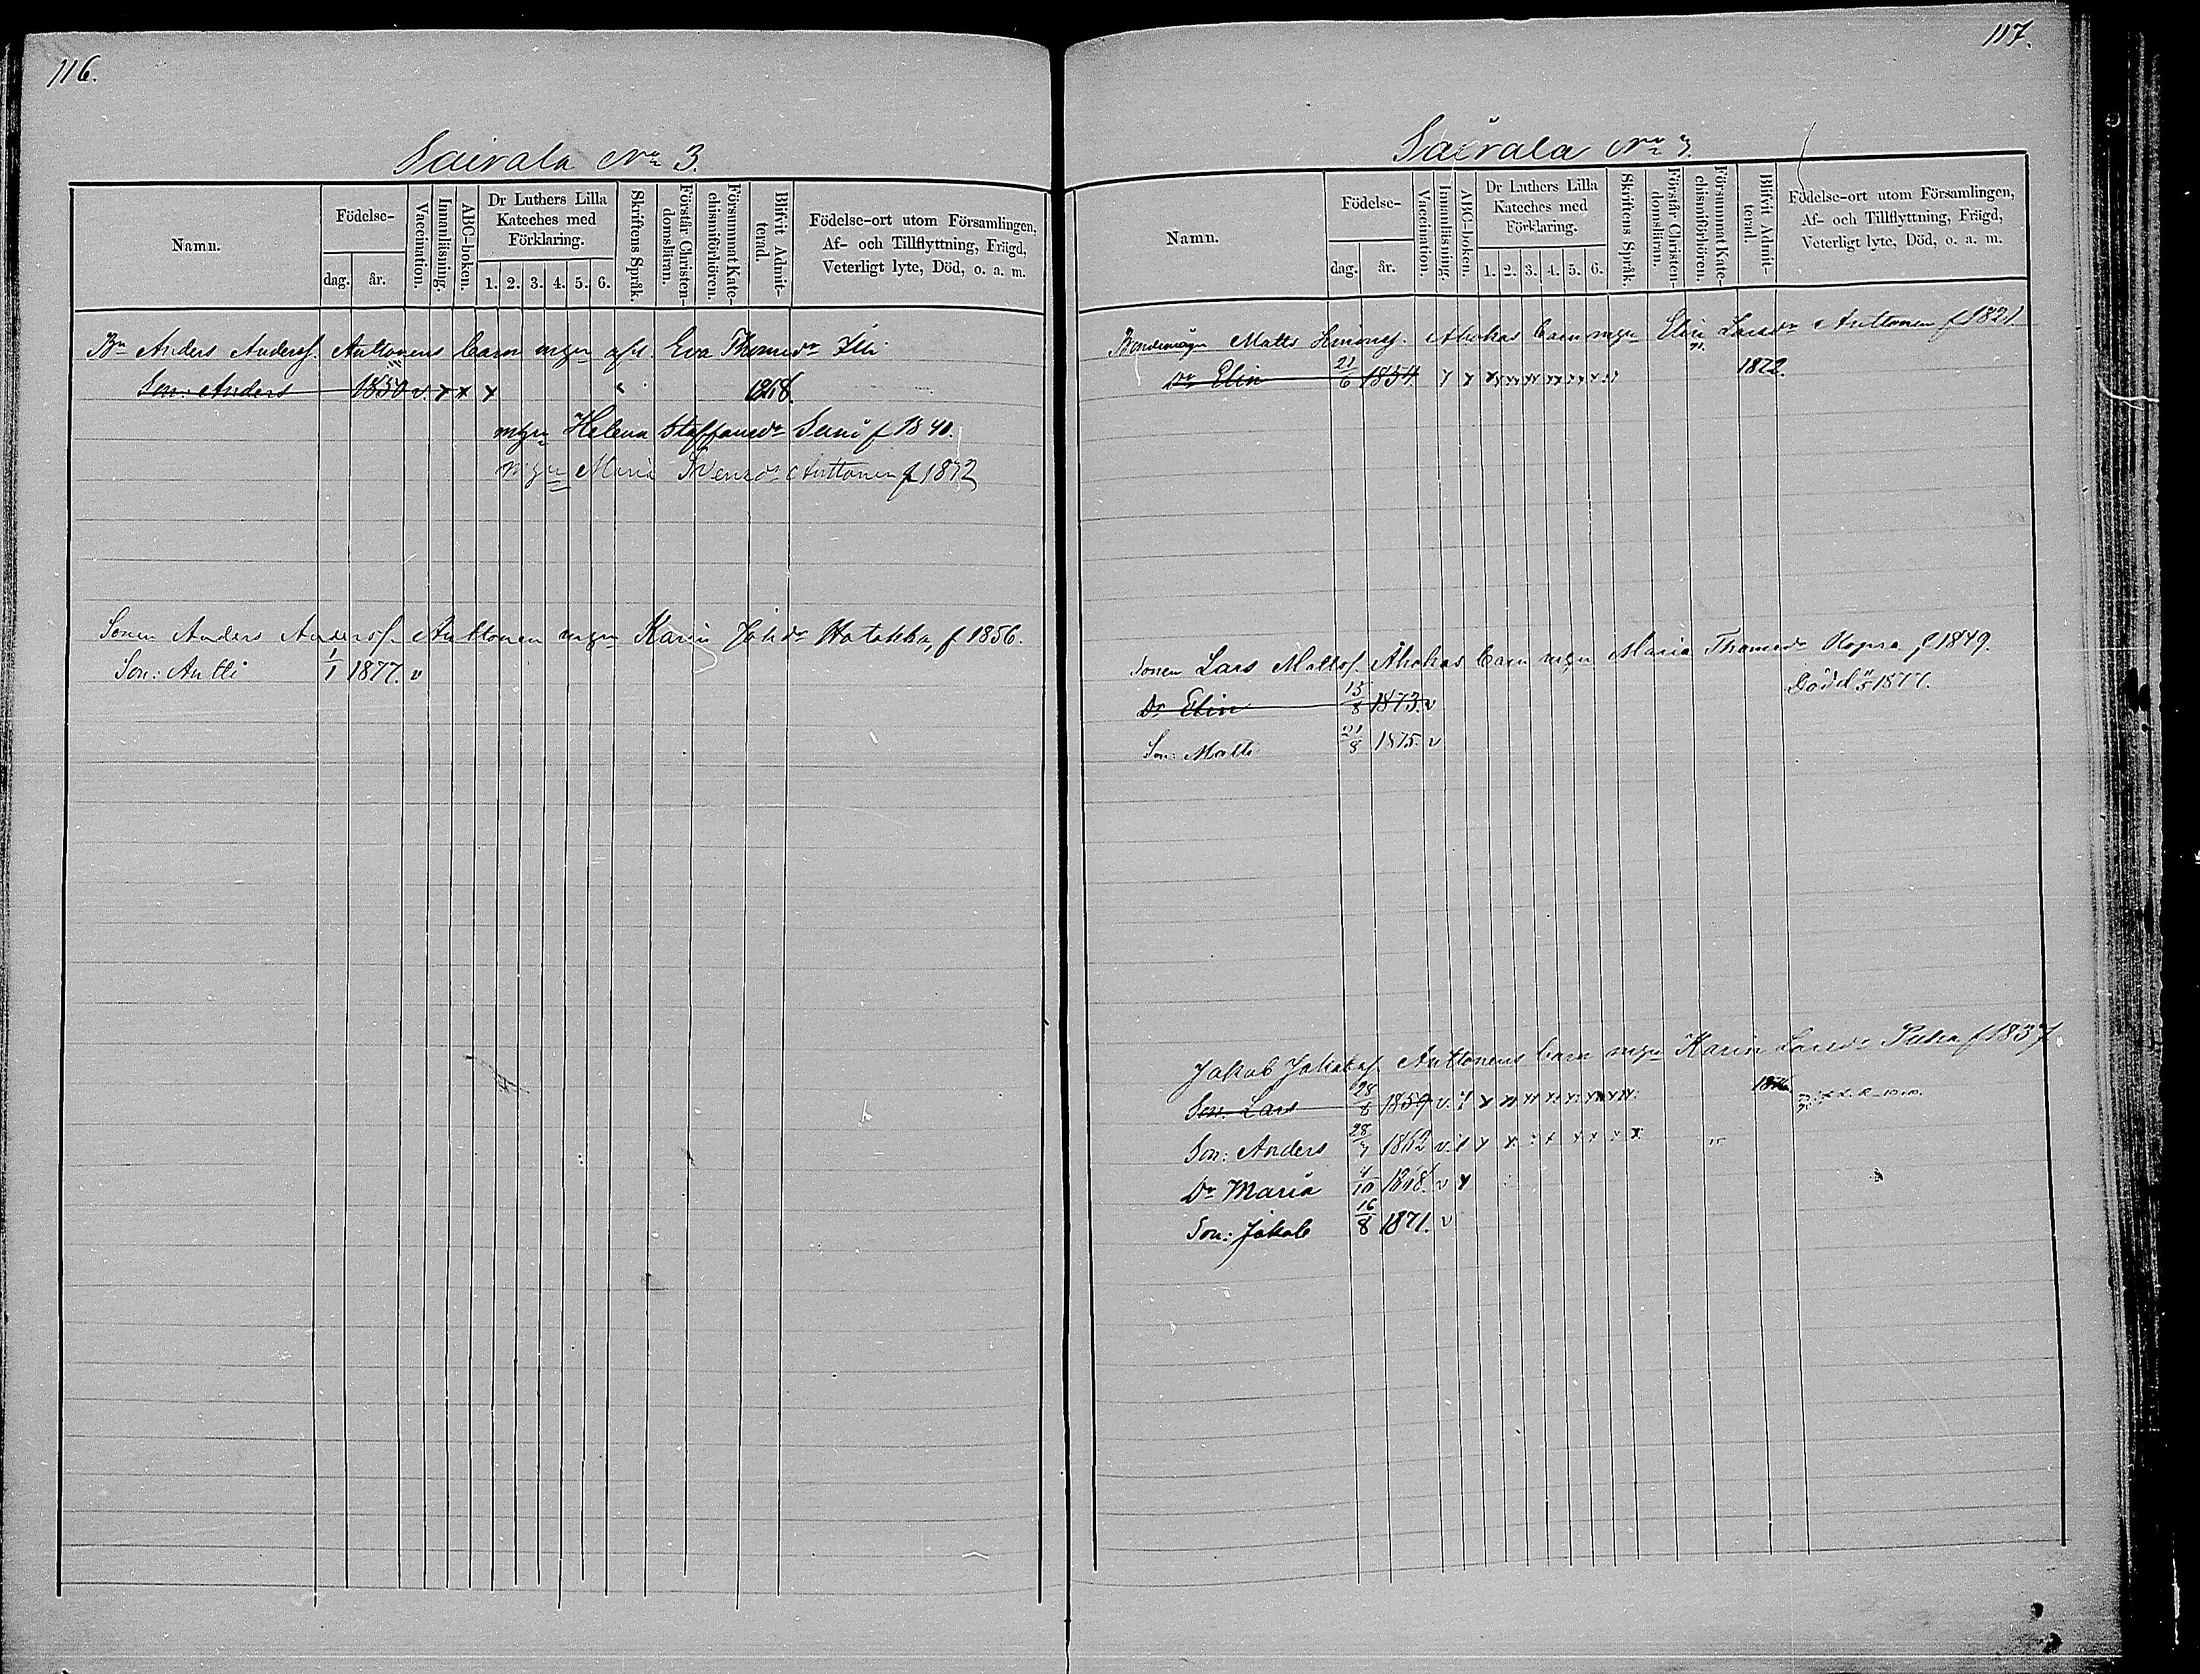 116.
Sairala No 3.
Namn.
Födelse-
dag. år.
Vaccination.
Innanläsning.
ABC-boken.
Dr Luthers Lilla
Kateches med
Förklaring.
1. 2. 3. 4. 5. 6.
Skriftens Språk.
Förstår Christen-
domsläran.
Försummat Kate-
chismiförhören.
Blifvit Admit-
terad.
Födelse-ort utom Församlingen,
Af- och Tillflyttning, Frägd,
Veterligt lyte, Död, o. a. m.
Bn Anders Andersf. Anttonens barn mgn afl. Eva Thomedr Illi
Son: Anders 1850 v. x x x 1868.
mgn Helena Staffansdr Suni f 1840.
mgn Maria Svensdr Anttonen f 1872
Sonen Anders Andersf. Anttonen mgn Karin Johdr Hatakka, f 1856.
Son: Antti 1/1 1877. v
117.
Sairala No 3.
Namn.
Födelse-
dag. år.
Vaccination.
Innanläsning.
ABC-boken.
Dr Luthers Lilla
Kateches med
Förklaring.
1. 2. 3. 4. 5. 6.
Skriftens Språk.
Förstår Christen-
domsläran.
Försummat Kate-
chismiförhören.
Blifvit Admit-
terad.
Födelse-ort utom Församlingen,
Af- och Tillflyttning, Frägd,
Veterligt lyte, Död, o. a. m.
Matts Ahokas barn mgn Elin Larsdr Anttonen f 1821
Dr Elin 21/6 1854 1872.
Sonen Lars Mattsf. Ahokas barn mgn Maria Thomedr f 1849.
Dr Elin 15/8 1873. v Död 1877.
Son: Matti 21/8 1875. v
Jakob Jakobsf. Anttonens barn mgn Karin Larsdr Puha f 1837
Son: Lars 28/8 1859 v.
Son: Anders 28/7 1862 v.
Dr Maria 4/10 1868. v x
Son: Jakob 16/8 1871. v